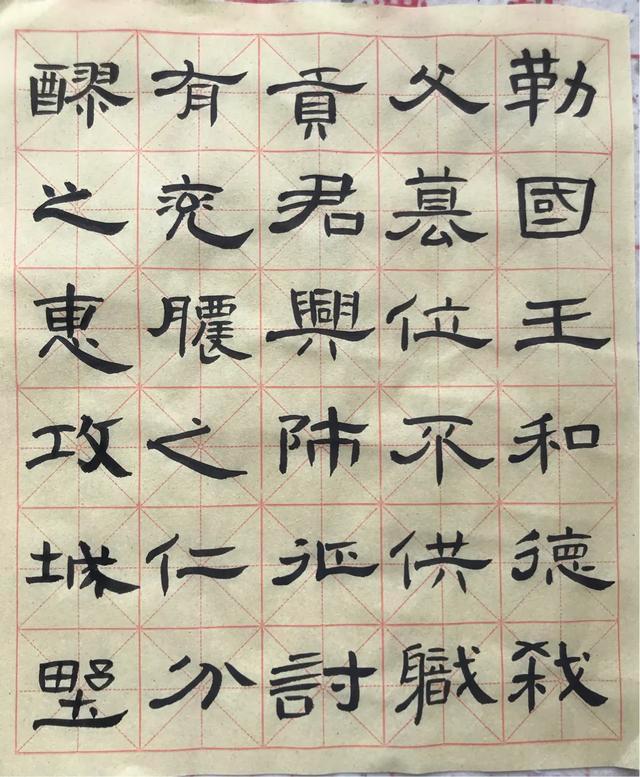 勒國王和德弒
父篡位不供職
貢君興師征討
有兖膿之仁分
醪之惠攻城野